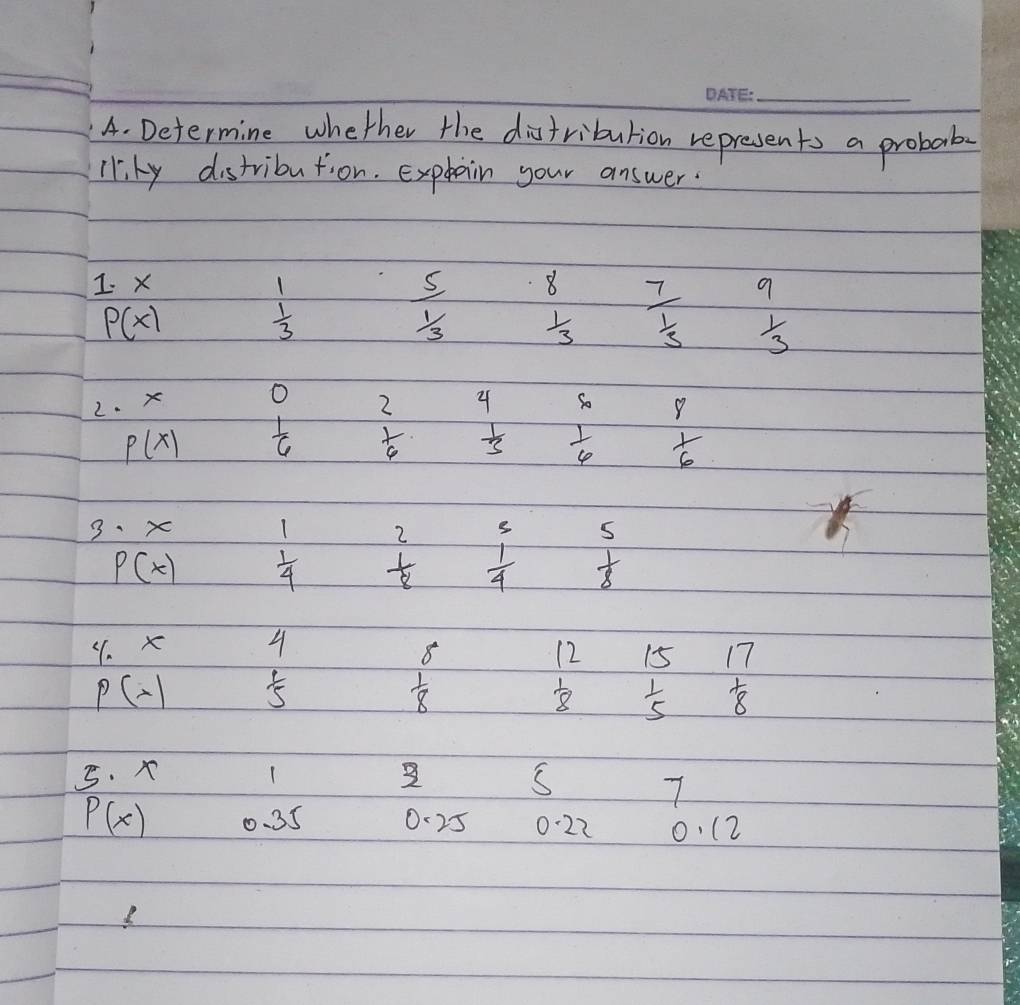 DATE:
A. Determine whether the distribution represents a probab-
ility distribution. Explain your answer.
1. x 1 5 8 7 9
P(x) 1/3 1/3 1/3 1/3 1/3
2. x 0 2 4 8
P(x) 1/6 1/6 1/3 1/6 1/6
3. x 1 2 5
P(x) 1/4 1/8 1/4 1/8
4. x 4 8 12 15 17
P(x) 1/5 1/8 1/8 1/5 1/8
5. x 1 3 5 7
P(x) 0.35 0.25 0.22 0.12